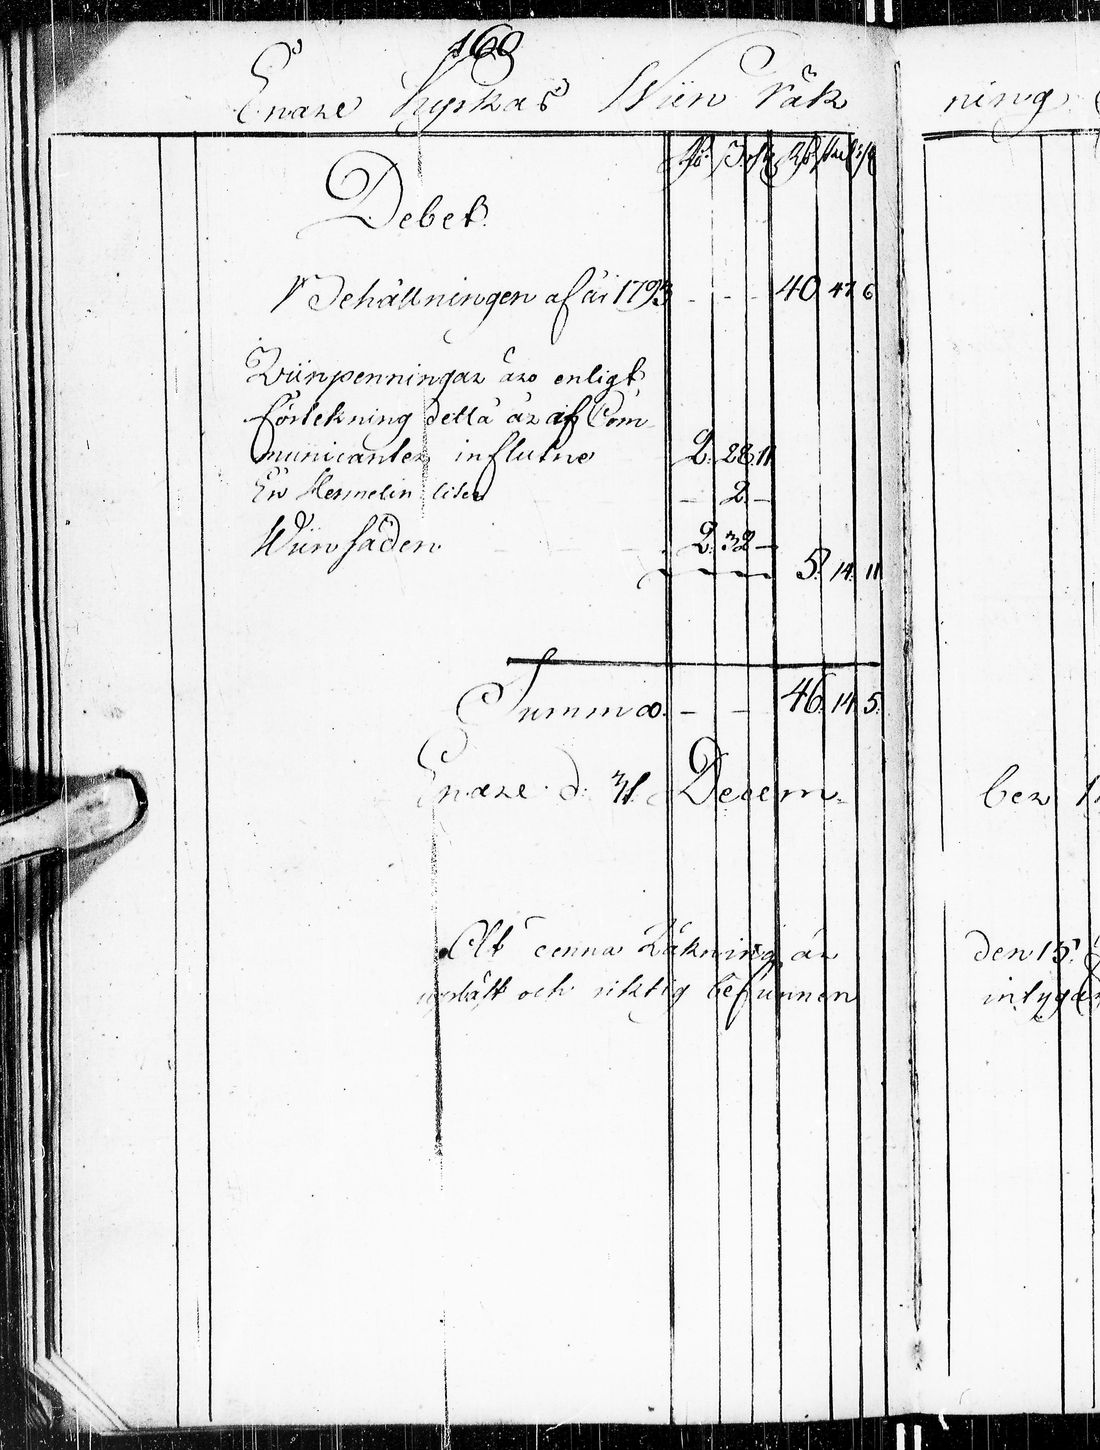 160
Enare Kyrkas Wiin Räk ning
Debet.
Behållningen af år 1793 - - - 40 47 6
Wiinpenningar äro enligt
förtekning detta år af Com-
municanter influtne 2. 28. 11
En Hermelin - 2. -
Wiin säden - - - 2. 32 -
5. 14. 11
Summa. - - 46. 14. 5.
Enare d. 31 Decem- ber
At denna Räkning är den 15.
och riktig befunnen intygar